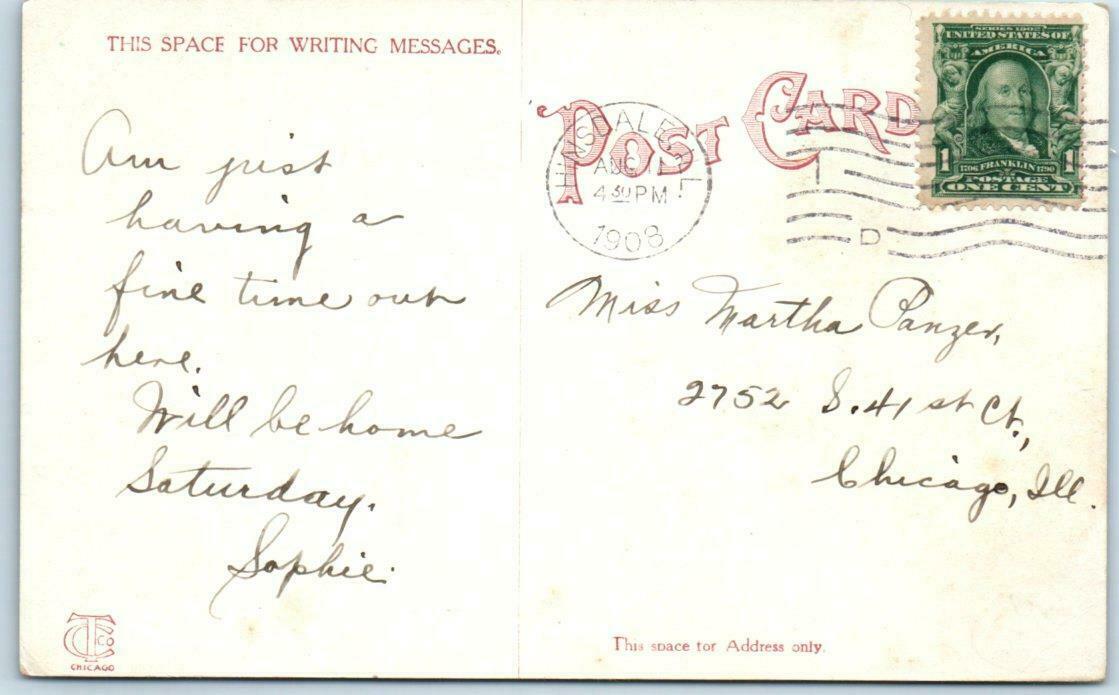 THIS SPACE FOR WRITING MESSAGES.
Am just
having a
fine time out
here.
Will be home
Saturday.
Sophie.
CTCO
CHICAGO
POST CARD
HINSDALE ILL.
AUG 11
4 30 PM
1908
D
SERIES 1902
UNITED STATES OF
AMERICA
1706 FRANKLIN 1790
1 POSTAGE 1
ONE CENT
Miss Martha Panzer,
2752 S. 41 st Ct.,
Chicago, Ill.
This space for Address only.